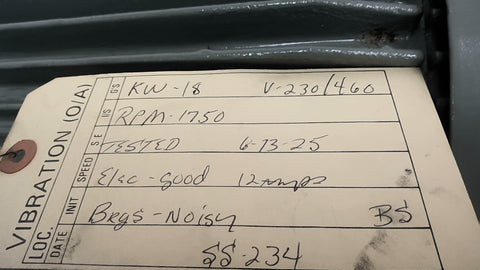 KW-18 V-230/460
RPM-1750
TESTED 6-13-25
Elec-good 12amps
Brgs-Noisy BS
SS-234
VIBRATION (O/A)
LOC.
DATE INIT SPEED S E I/S G'S